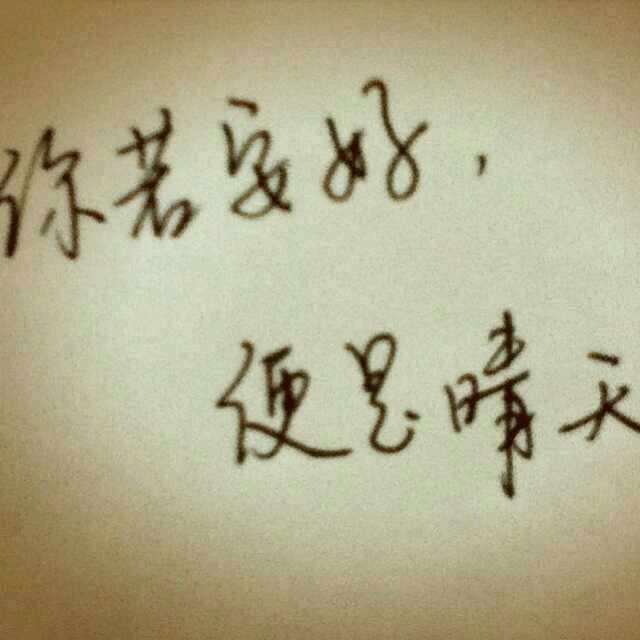 你若安好,
便是晴天